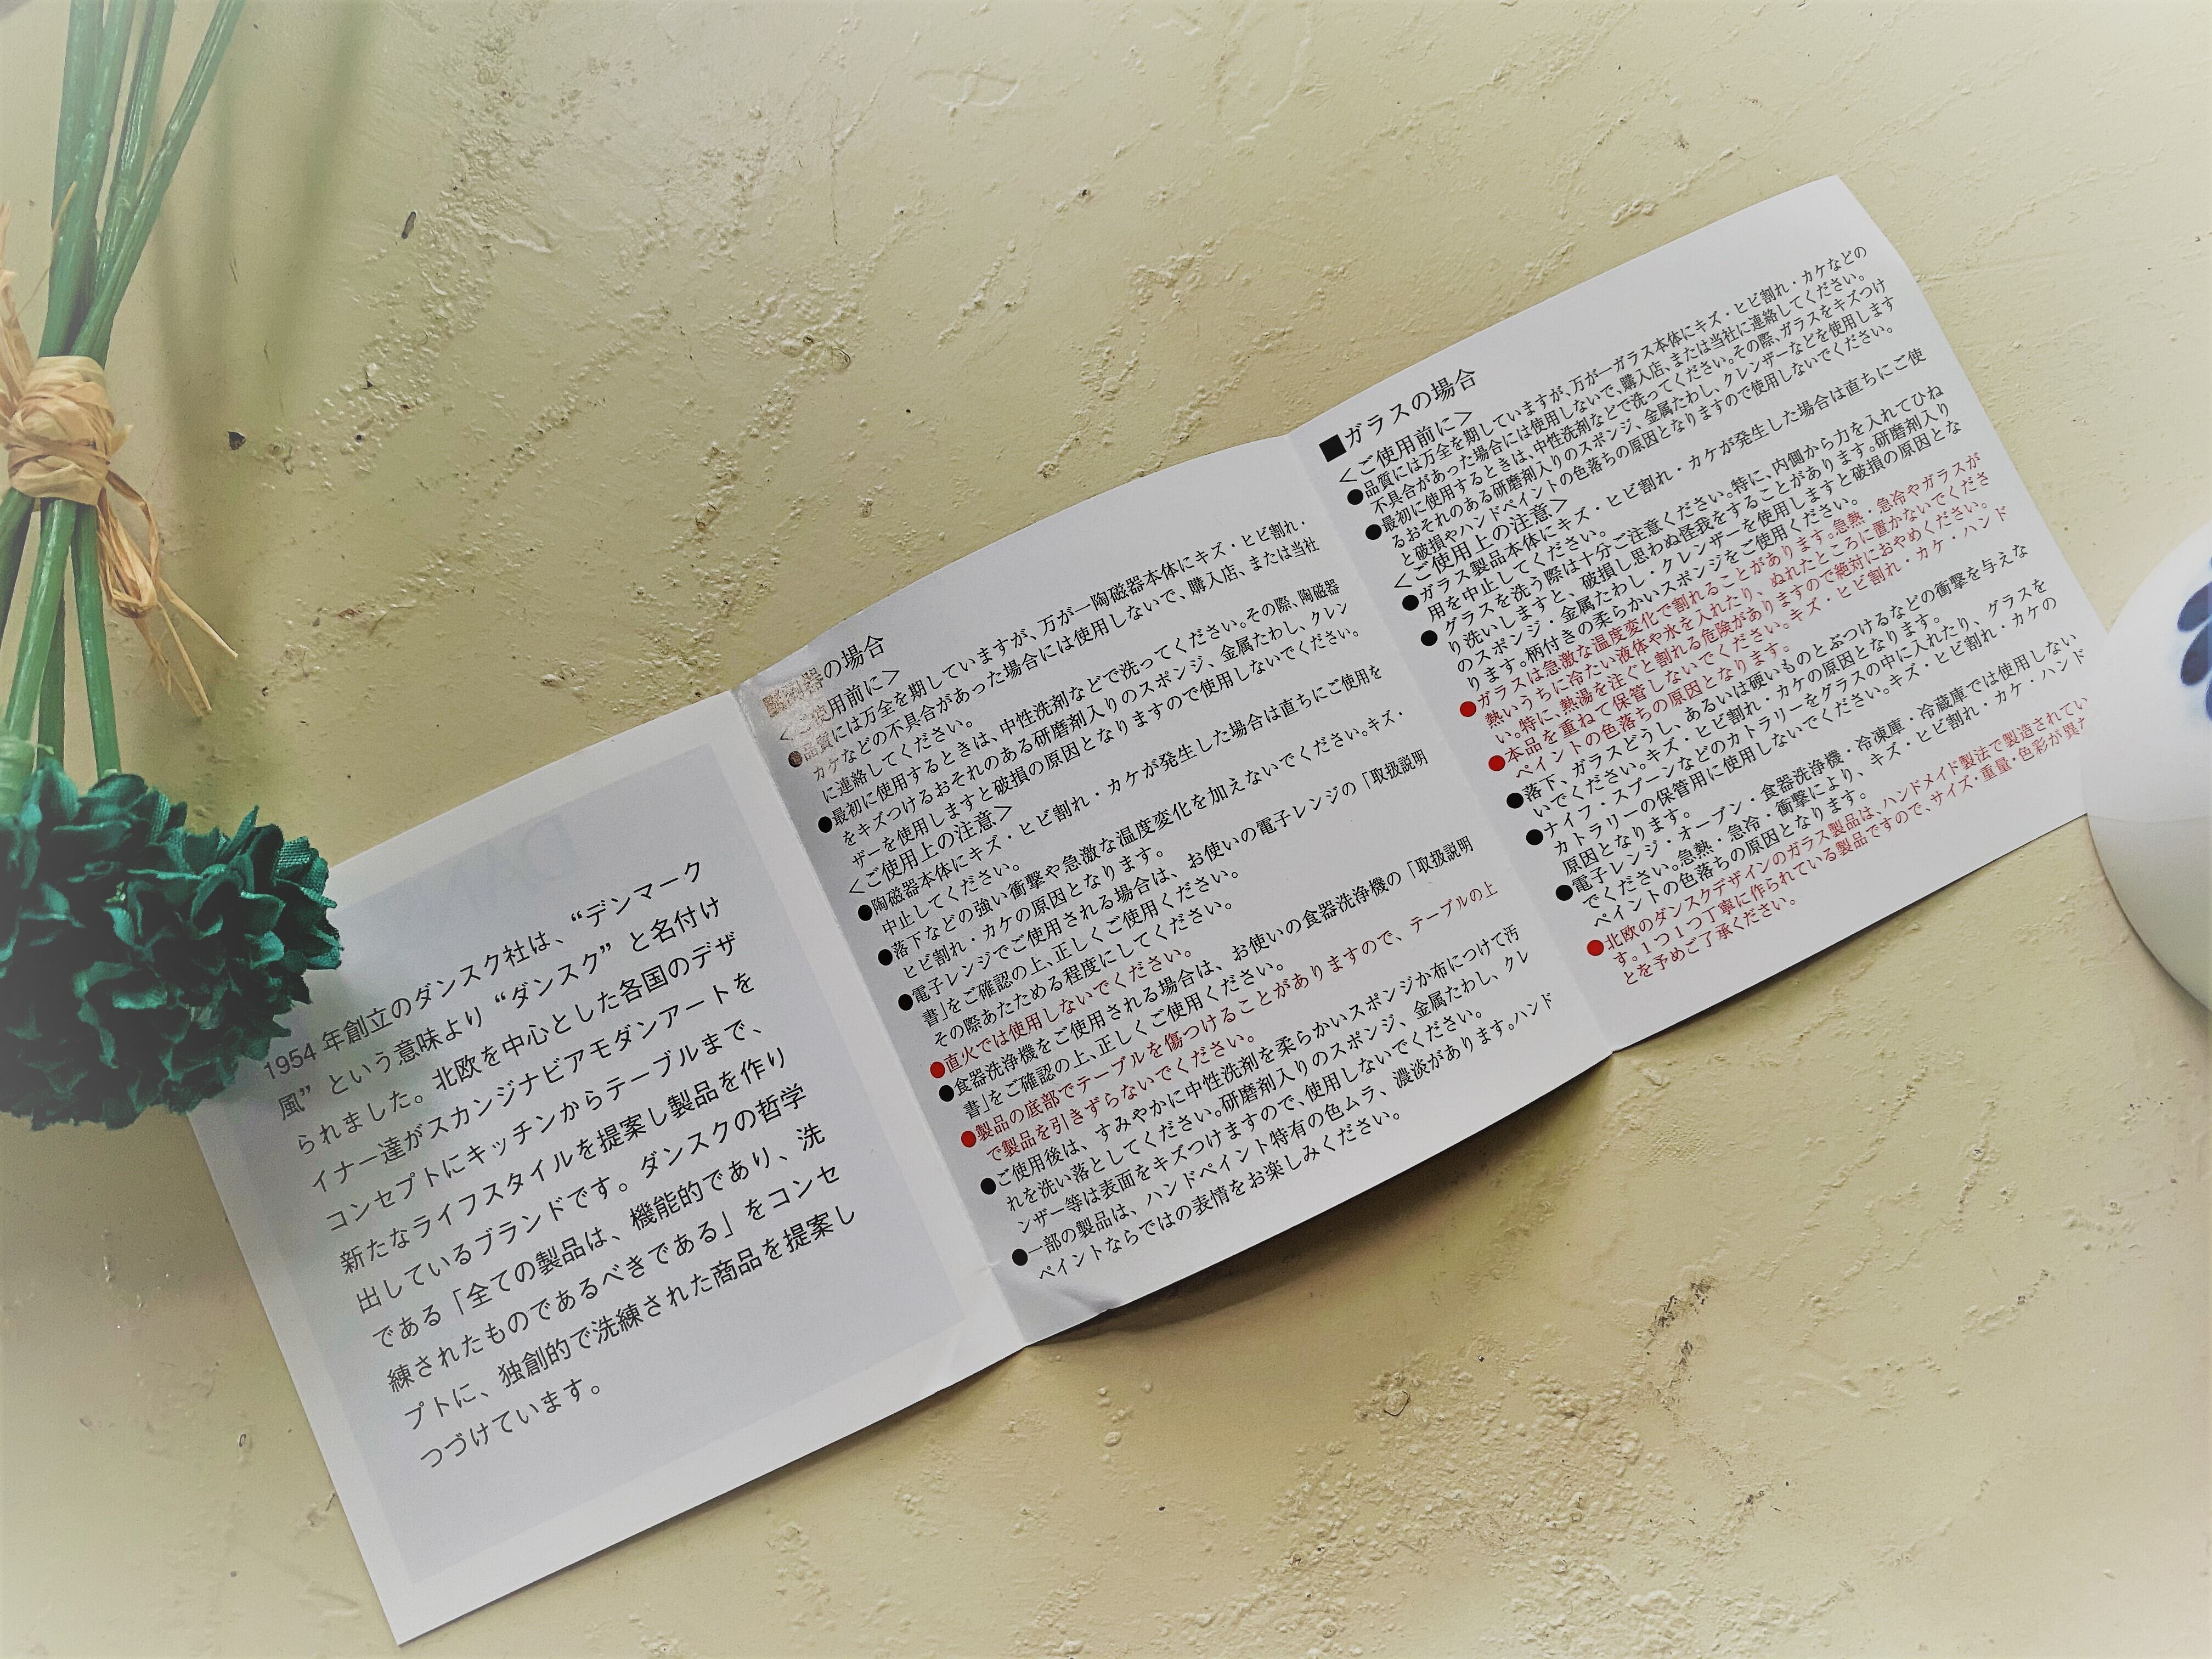 1954 年創立のダンスク社は、“デンマーク
風” という意味より “ダンスク” と名付け
られました。北欧を中心とした各国のデザ
イナー達がスカンジナビアモダンアートを
コンセプトにキッチンからテーブルまで、
新たなライフスタイルを提案し製品を作り
出しているブランドです。ダンスクの哲学
である「全ての製品は、機能的であり、洗
練されたものであるべきである」をコンセ
プトに、独創的で洗練された商品を提案し
つづけています。
器の場合
＜ご使用前に＞
●品質には万全を期していますが、万が一陶磁器本体にキズ・ヒビ割れ・
カケなどの不具合があった場合には使用しないで、購入店、または当社
に連絡してください。
●最初に使用するときは、中性洗剤などで洗ってください。その際、陶磁器
をキズつけるおそれのある研磨剤入りのスポンジ、金属たわし、クレン
ザーを使用しますと破損の原因となりますので使用しないでください。
＜ご使用上の注意＞
●陶磁器本体にキズ・ヒビ割れ・カケが発生した場合は直ちにご使用を
中止してください。
●落下などの強い衝撃や急激な温度変化を加えないでください。キズ・
ヒビ割れ・カケの原因となります。
●電子レンジでご使用される場合は、お使いの電子レンジの「取扱説明
書」をご確認の上、正しくご使用ください。
その際あたためる程度にしてください。
●直火では使用しないでください。
●食器洗浄機をご使用される場合は、お使いの食器洗浄機の「取扱説明
書」をご確認の上、正しくご使用ください。
●製品の底部でテーブルを傷つけることがありますので、テーブルの上
で製品を引きずらないでください。
●ご使用後は、すみやかに中性洗剤を柔らかいスポンジか布につけて汚
れを洗い落としてください。研磨剤入りのスポンジ、金属たわし、クレ
ンザー等は表面をキズつけますので、使用しないでください。
●一部の製品は、ハンドペイント特有の色ムラ、濃淡があります。ハンド
ペイントならではの表情をお楽しみください。
■ガラスの場合
＜ご使用前に＞
●品質には万全を期していますが、万が一ガラス本体にキズ・ヒビ割れ・カケなどの
不具合があった場合には使用しないで、購入店、または当社に連絡してください。
●最初に使用するときは、中性洗剤などで洗ってください。その際、ガラスをキズつけ
るおそれのある研磨剤入りのスポンジ、金属たわし、クレンザーなどを使用します
と破損やハンドペイントの色落ちの原因となりますので使用しないでください。
＜ご使用上の注意＞
●ガラス製品本体にキズ・ヒビ割れ・カケが発生した場合は直ちにご使
用を中止してください。
●グラスを洗う際は十分ご注意ください。特に、内側から力を入れてひね
り洗いしますと、破損し思わぬ怪我をすることがあります。研磨剤入り
のスポンジ・金属たわし・クレンザーを使用しますと破損の原因とな
ります。柄付きの柔らかいスポンジをご使用ください。
●ガラスは急激な温度変化で割れることがあります。急熱・急冷やガラスが
熱いうちに冷たい液体や氷を入れたり、ぬれたところに置かないでくださ
い。特に、熱湯を注ぐと割れる危険がありますので絶対におやめください。
●本品を重ねて保管しないでください。キズ・ヒビ割れ・カケ・ハンド
ペイントの色落ちの原因となります。
●落下、ガラスどうし、あるいは硬いものとぶつけるなどの衝撃を与えな
いでください。キズ・ヒビ割れ・カケの原因となります。
●ナイフ・スプーンなどのカトラリーをグラスの中に入れたり、グラスを
カトラリーの保管用に使用しないでください。キズ・ヒビ割れ・カケの
原因となります。
●電子レンジ・オーブン・食器洗浄機・冷凍庫・冷蔵庫では使用しない
でください。急熱・急冷・衝撃により、キズ・ヒビ割れ・カケ・ハンド
ペイントの色落ちの原因となります。
●北欧のダンスクデザインのガラス製品は、ハンドメイド製法で製造されてい
す。1つ1つ丁寧に作られている製品ですので、サイズ・重量・色彩が異な
とを予めご了承ください。